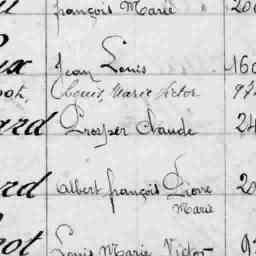 françois Marie 20
Jean Louis 160
Louis, Marie Victor 97
ard Prosper Claude 24
rd Albert françois Pierre 20
Marie
ot Louis Marie Victor